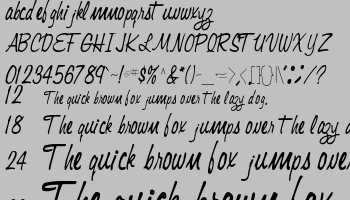 abcdefghijklmnopqrst uvwxyz
ABCDEFGHIJKLMNOPQRSTUVWXYZ
0123456789
12 The quick brown fox jumps over the lazy dog.
18 The quick brown fox jumps over the lazy
24 The quick brown fox jumps over
The quick brown fox